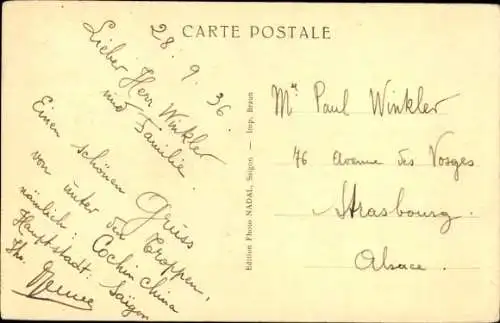 CARTE POSTALE
28. 9. 36.
Lieber Herr Winkler
und Familie.
Einen schönen Gruss
von unter den Troppen,
nämlich: Cochin china
Hauptstadt: Saïgon
Ihr.
Edition Photo NADAL, Saigon — Imp. Braun
Mr Paul Winkler
76 Avenue des Vosges
Strasbourg.
Alsace.